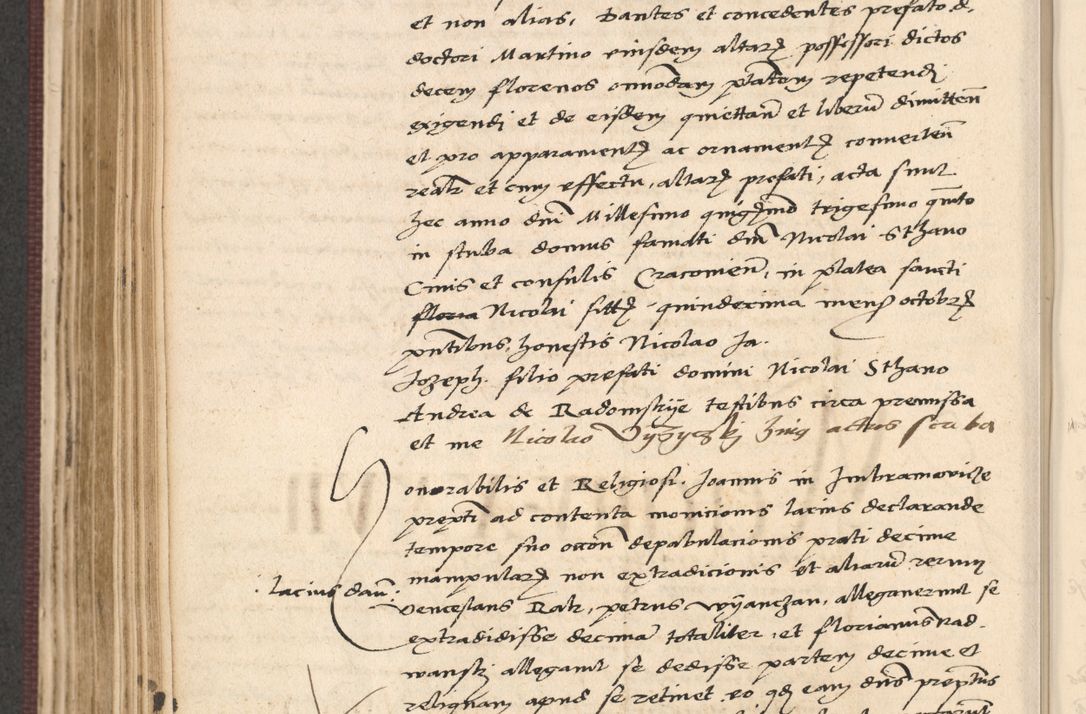 et non alias, Dantes et concedentes prefato d.
doctori Martino eiusdem altarz possessori dictos
decem florenos omnodam ptatem repetendi
exigendi et de eisdem quiettan̄ et liberū dimitten̄
et pro apparamentz ac ornamentz converten̄
realr et cum effectu, altarz prefati, acta sunt
hec anno dni Millesimo quigzmo trigesimo quīto
in stuba domus famati dni Nicolai Sthano
Civis et consulis Cracovien̄, in platea sancti
Nicolai sittz quindecima mensz octobrz
pntibus, honestis Nicolao Ja.
Jozeph. filio prefati domini Nicolai Sthano
Andrea de Radomskye testibus circa premissa
et me Nicolao actus scriba
onorabilis et Religiosi. Joannis in Imbramovicze
prepti ad contenta monicionis lacius declarande
tempore suo occon̄ depabulacionis prati decime
manipularz non extradicionis et aliarū rerum
: lacius dau :
Venceslaus Ratz, petrus wyanczan, allegaverunt se
extradidisse decimā totaliter, et florianus Nad-
wanski allegavit se dedisse partem decime et
reliquam apud se retinet eo qd eam dns preptus